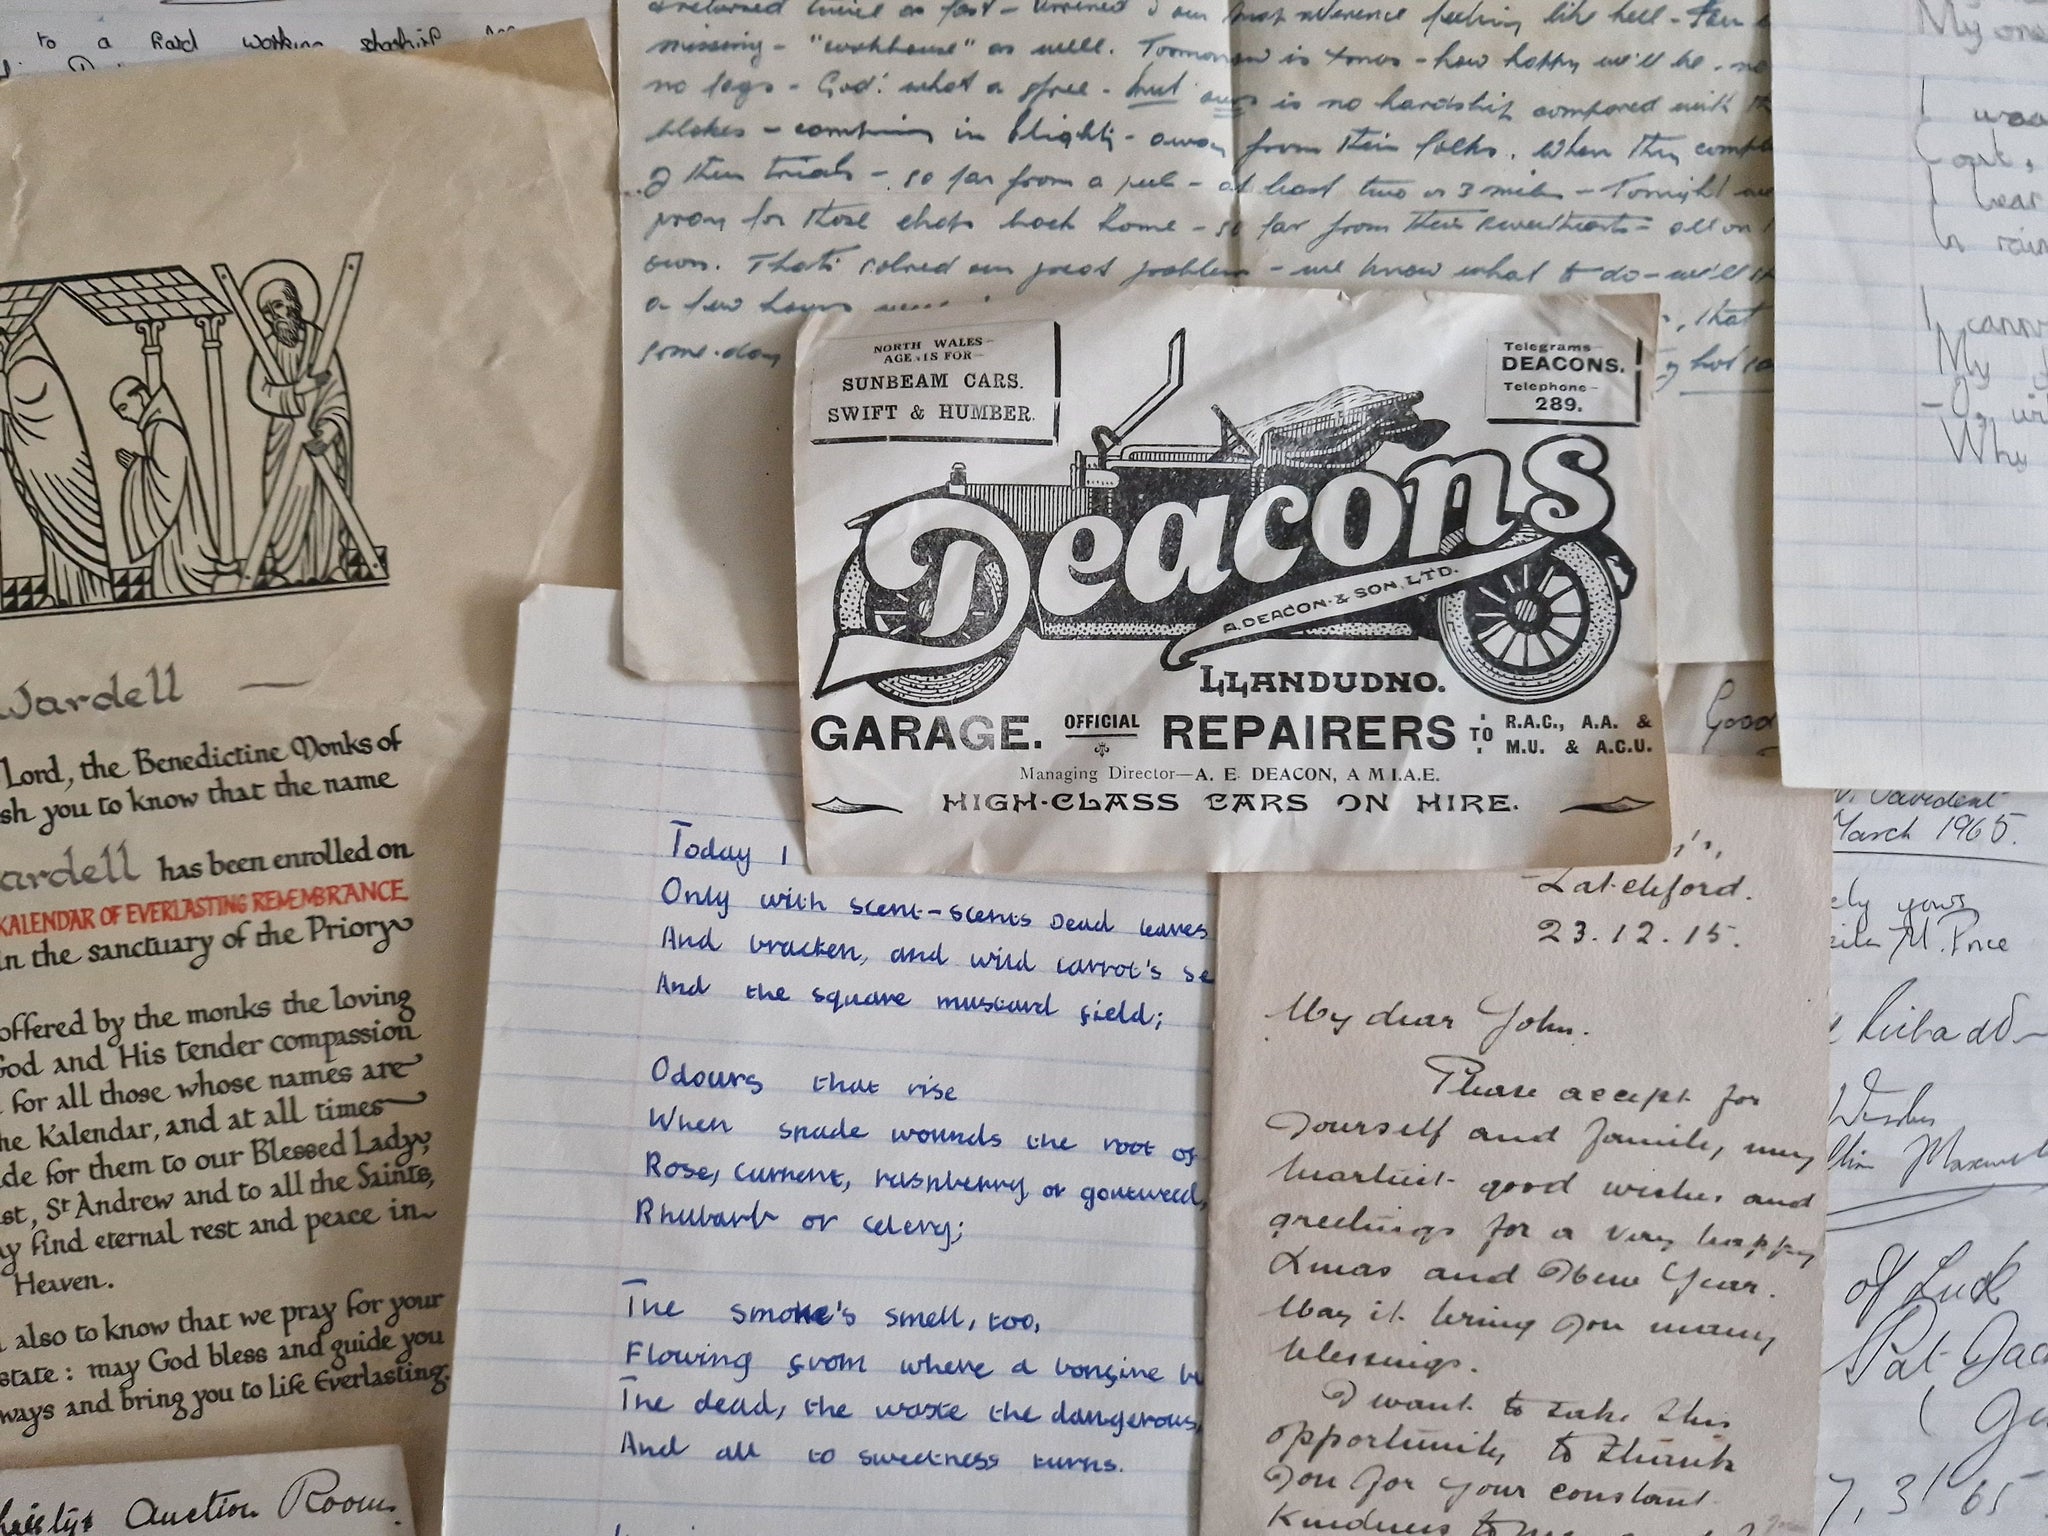 to a hard working
missing - "workhouse" as well. Tomorrow is - how happy we'll be - no
no legs - God! what a spree - but ours is no hardship compared with
blokes - combing in Blighty - away from their folks. When they
of their trials - so far from a pub - at least two or 3 miles - Tonight we
pray for those chaps back home - so far from their sweethearts - all on
own. That's solved our great problem - we know what to do - we'll
a few hours
that
some-day
NORTH WALES
FOR
SUNBEAM CARS.
SWIFT & HUMBER.
Telegrams
DEACONS.
Telephone
289.
Deacons
A. DEACON & SON, LTD.
LLANDUDNO.
GARAGE. OFFICIAL REPAIRERS TO R.A.C., A.A. &
M.U. & A.C.U.
Managing Director—A. E. DEACON, A M I.A.E.
HIGH-CLASS CARS ON HIRE.
Wardell
Lord, the Benedictine Monks of
you to know that the name
has been enrolled on
KALENDAR OF EVERLASTING REMEMBRANCE
in the sanctuary of the Priory
offered by the monks the loving
God and His tender compassion
for all those whose names are
Kalendar, and at all times
for them to our Blessed Lady,
St Andrew and to all the Saints,
find eternal rest and peace in
Heaven.
also to know that we pray for your
state: may God bless and guide you
and bring you to life Everlasting.
Auction Rooms.
Today I
Only with scent-scents Dead leaves
And bracken, and wild carrot's se
And the square mustard field;
Odours that rise
When spade wounds the root of
Rose, current, raspberry, or goutweed,
Rhubarb or celery;
The smoke's smell, too,
Flowing from where a bongine bu
The dead, the waste the dangerous,
And all to sweetness turns.
Latchford.
23.12.15.
My dear John.
Please accept for
yourself and family, my
heartiest good wishes and
greetings for a very happy
Xmas and New Year.
May it bring you many
blessings.
I want to take this
opportunity to thank
you for your constant
kindness to me
My one
I
Coat,
I hear
In rain
I cannot
My
Why
Good
March 1965.
yours
M. Price
Wishes
of Luck
Pat
7, 3/ 65